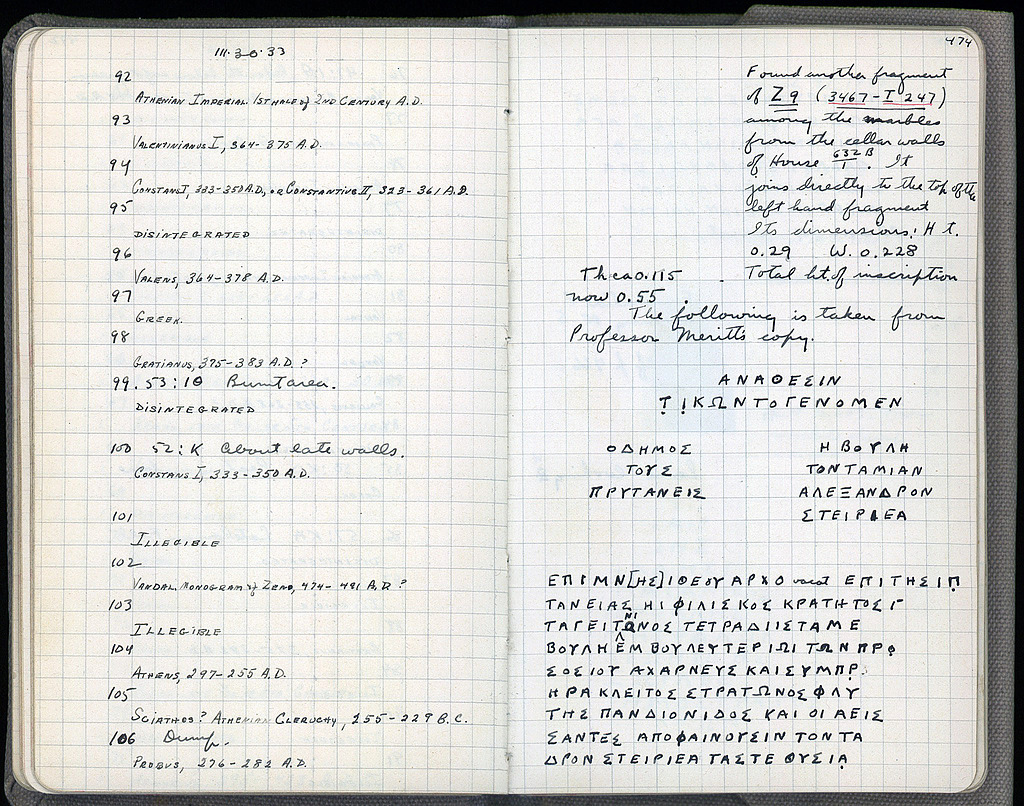 III·30·33
92
ATHENIAN IMPERIAL 1ST HALF of 2ND CENTURY A.D.
93
VALENTINIANUS I, 364-375 A.D.
94
CONSTANS I, 333-350 A.D., OR CONSTANTIUS II, 323-361 A.D.
95
DISINTEGRATED
96
VALENS, 364-378 A.D.
97
GREEK.
98
GRATIANUS, 375-383 A.D.?
99. 53:ΙΘ Burnt area.
DISINTEGRATED
100 52:K About late walls.
CONSTANS I, 333-350 A.D.
101
ILLEGIBLE
102
VANDAL. MONOGRAM of ZENO, 474-491 A.D.?
103
ILLEGIBLE
104
ATHENS, 297-255 A.D.
105
SCIATHOS? ATHENIAN CLERUCHY, 255-229 B.C.
106 Dump.
PROBUS, 276-282 A.D.
474
Found another fragment
of Z 9 (3467-I 247)
among the marbles
from the cellar walls
of House 632B/1. It
joins directly to the top of the
left hand fragment
Its dimensions: Ht.
0.29 W. 0.228
Th ca 0.115 Total ht. of inscription
now 0.55.
The following is taken from
Professor Meritt's copy.
ΑΝΑΘΕΣΙΝ
Τ̣Ι̣ΚΩΝΤΟΓΕΝΟΜΕΝ
ΟΔΗΜΟΣ ΗΒΟΥΛΗ
ΤΟΥΣ ΤΟΝΤΑΜΙΑΝ
ΠΡΥΤΑΝΕΙΣ ΑΛΕΞΑΝΔΡΟΝ
ΣΤΕΙΡΙΕΑ
ΕΠΙΜΝ[ΗΣ]ΙΘΕΟΥΑΡΧΟ vacat ΕΠΙΤΗΣΙΠ̣
ΤΑΝΕΙΑΣ ΗΙ ΦΙΛΙΣΚΟΣ ΚΡΑΤΗΤΟΣ Γ
ΤΑΓΕΙΤΝΙΩΝΟΣ ΤΕΤΡΑΔΙΙΣΤΑΜΕ
ΒΟΥΛΗΛΕΜΒΟΥΛΕΥΤΕΡΙΩΙ ΤΩΝ ΠΡΟ̣
ΣΟΣΙΟΥ ΑΧΑΡΝΕΥΣ ΚΑΙΣΥΜΠΡ̣
ΗΡΑΚΛΕΙΤΟΣ ΣΤΡΑΤΩΝΟΣ ΦΛΥ
ΤΗΣ ΠΑΝΔΙΟΝΙΔΟΣ ΚΑΙ ΟΙ ΑΕΙΣ
ΣΑΝΤΕΣ ΑΠΟΦΑΙΝΟΥΣΙΝ ΤΟΝΤΑ
ΔΡΟΝ ΣΤΕΙΡΙΕΑ ΤΑΣΤΕ ΘΥΣΙΑ̣